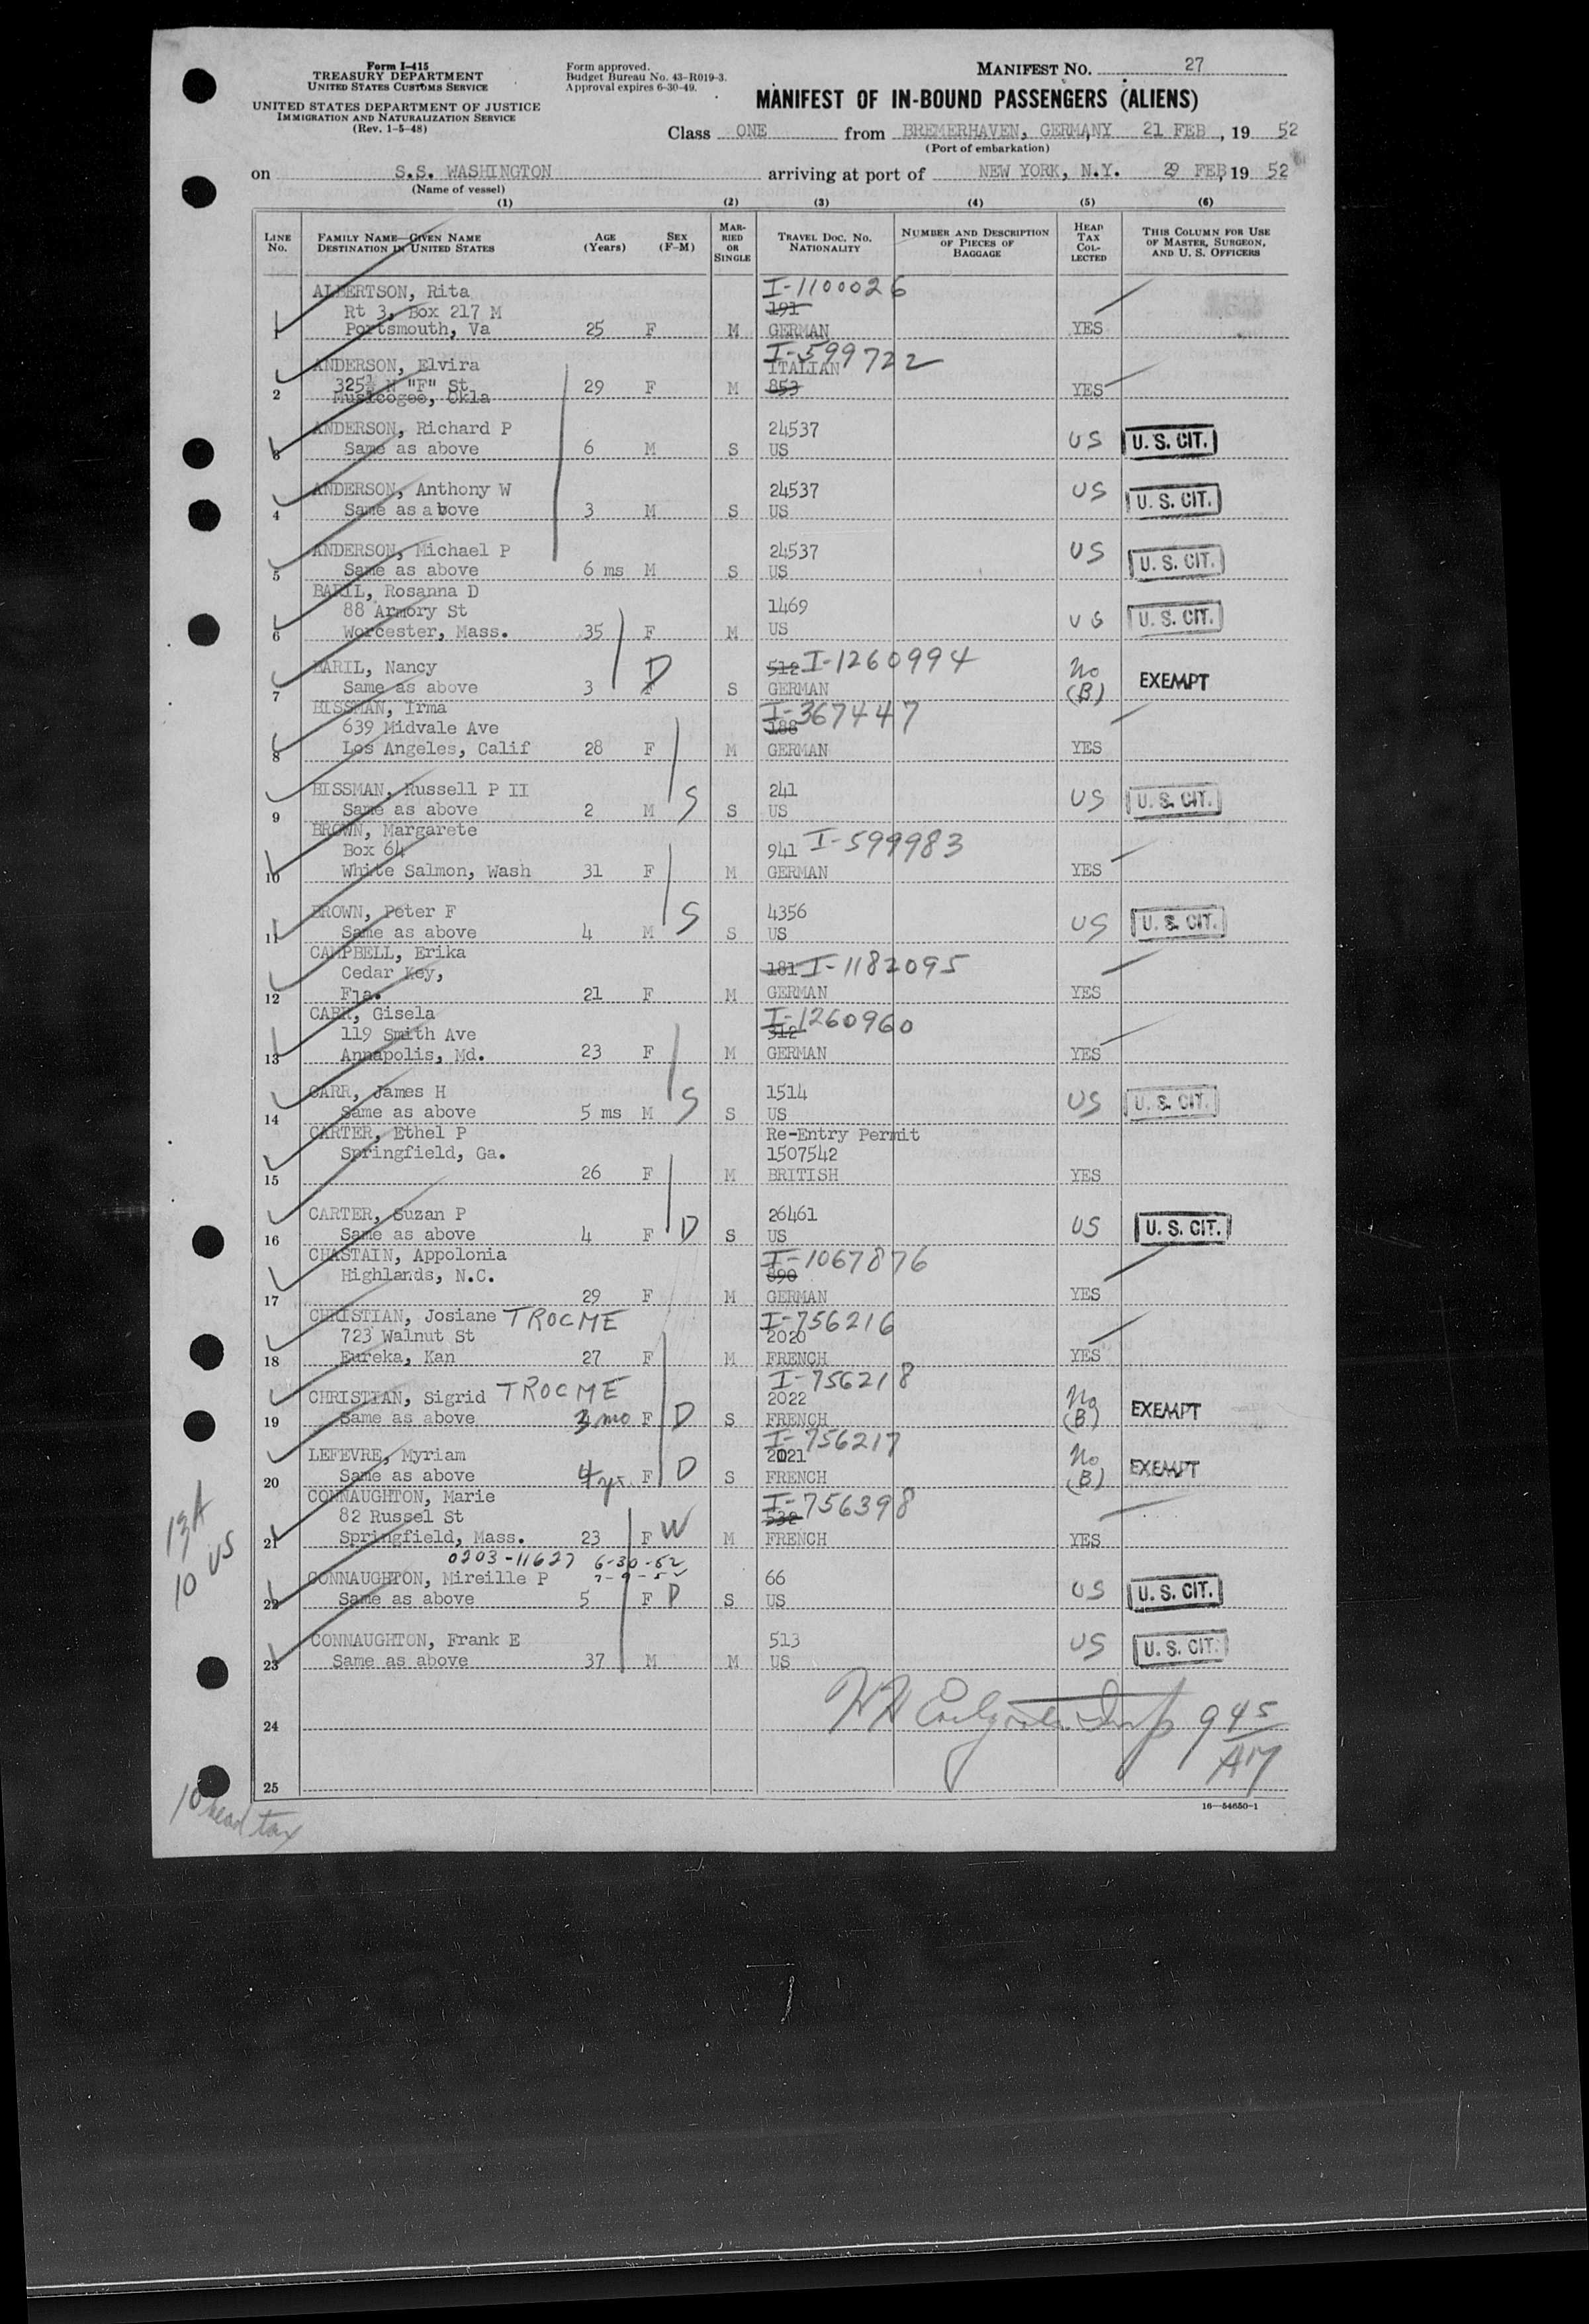 Form I-415
TREASURY DEPARTMENT
UNITED STATES CUSTOMS SERVICE
UNITED STATES DEPARTMENT OF JUSTICE
IMMIGRATION AND NATURALIZATION SERVICE
(Rev. 1-5-48)
Form approved.
Budget Bureau No. 43-R019-3.
Approval expires 6-30-49.
MANIFEST NO. 27
MANIFEST OF IN-BOUND PASSENGERS (ALIENS)
Class ONE from BREMERHAVEN, GERMANY 21 FEB, 19 52
(Port of embarkation)
on S.S. WASHINGTON arriving at port of NEW YORK, N.Y. 29 FEB, 19 52
(Name of vessel)
(1) (2) (3) (4) (5) (6)
LINE No. FAMILY NAME—GIVEN NAME DESTINATION IN UNITED STATES AGE (Years) SEX (F-M) MARRIED OR SINGLE TRAVEL DOC. NO. NATIONALITY NUMBER AND DESCRIPTION OF PIECES OF BAGGAGE HEAD TAX COLLECTED THIS COLUMN FOR USE OF MASTER, SURGEON, AND U. S. OFFICERS
ALBERTSON, Rita I-1100026
Rt 3, Box 217 M 191
1 Portsmouth, Va 25 F M GERMAN YES
I-599722
ANDERSON, Elvira ITALIAN
325½ N "F" St 29 F M 853 YES
2 Muskogee, Okla
ANDERSON, Richard P 24537
3 Same as above 6 M S US US U. S. CIT.
ANDERSON, Anthony W 24537
4 Same as above 3 M S US US U. S. CIT.
ANDERSON, Michael P 24537
5 Same as above 6 ms M S US US U. S. CIT.
BARIL, Rosanna D
88 Armory St 1469
6 Worcester, Mass. 35 F M US US U. S. CIT.
BARIL, Nancy D 512 I-1260994 No
7 Same as above 3 F S GERMAN (B) EXEMPT
BISSMAN, Irma I-367447
639 Midvale Ave 188
8 Los Angeles, Calif 28 F M GERMAN YES
BISSMAN, Russell P II 241
9 Same as above 2 M S S US US U. S. CIT.
BROWN, Margarete
Box 64 941 I-599983
10 White Salmon, Wash 31 F M GERMAN YES
BROWN, Peter F 4356
11 Same as above 4 M S S US US U. S. CIT.
CAMPBELL, Erika
Cedar Key, 181 I-1182095
12 Fla. 21 F M GERMAN YES
CARR, Gisela I-1260960
119 Smith Ave 312
13 Annapolis, Md. 23 F M GERMAN YES
CARR, James H 1514
14 Same as above 5 ms M S S US US U. S. CIT.
CARTER, Ethel P Re-Entry Permit
Springfield, Ga. 1507542
15 26 F M BRITISH YES
CARTER, Suzan P 26461
16 Same as above 4 F D S US US U. S. CIT.
CHASTAIN, Appolonia I-1067876
Highlands, N.C. 890
17 29 F M GERMAN YES
CHRISTIAN, Josiane TROCME I-756216
723 Walnut St 2020
18 Eureka, Kan 27 F M FRENCH YES
I-756218
CHRISTIAN, Sigrid TROCME 2022 No
19 Same as above 3 mo F D S FRENCH (B) EXEMPT
I-756217
LEFEVRE, Myriam 2021 No
20 Same as above 4 yr. F D S FRENCH (B) EXEMPT
CONNAUGHTON, Marie I-756398
82 Russel St 532
21 Springfield, Mass. 23 F W M FRENCH YES
0203-11627 6-30-52
CONNAUGHTON, Mireille P 66
22 Same as above 5 F D S US US U. S. CIT.
CONNAUGHTON, Frank E 513
23 Same as above 37 M M US US U. S. CIT.
24 945
AM
25
16—54650-1
13A
10 US
10 head tax